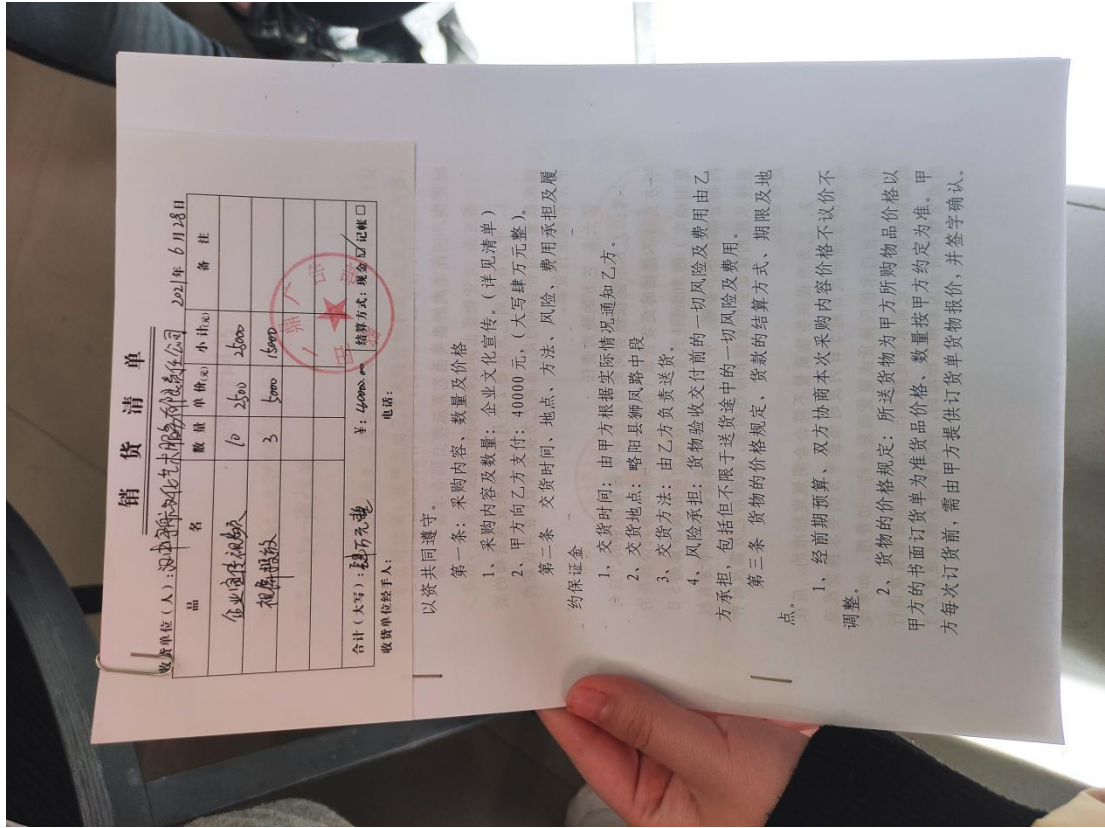 销 货 清 单
收货单位(人):汉中 文化艺术服务有限责任公司 2021年6月28日
品 名 数 量 单 价(元) 小 计(元) 备 注
企业宣传视频 10 2500 25000
视频投放 3 5000 15000
合计(大写):肆万元整 ¥:40000.00 结算方式:现金☑ 记帐□
收货单位经手人: 电话:
以资共同遵守。
第一条:采购内容、数量及价格
1、采购内容及数量:企业文化宣传。(详见清单)
2、甲方向乙方支付:40000元,(大写肆万元整)。
第二条 交货时间、地点、方法、风险、费用承担及履
约保证金
1、交货时间:由甲方根据实际情况通知乙方。
2、交货地点:略阳县狮凤路中段
3、交货方法:由乙方负责送货。
4、风险承担:货物验收交付前的一切风险及费用由乙
方承担,包括但不限于送货途中的一切风险及费用。
第三条 货物的价格规定、货款的结算方式、期限及地
点。
1、经前期预算、双方协商本次采购内容价格不议价不
调整。
2、货物的价格规定:所送货物为甲方所购物品价格以
甲方的书面订货单为准货品价格、数量按甲方约定为准。甲
方每次订货前,需由甲方提供订货单货物报价,并签字确认。